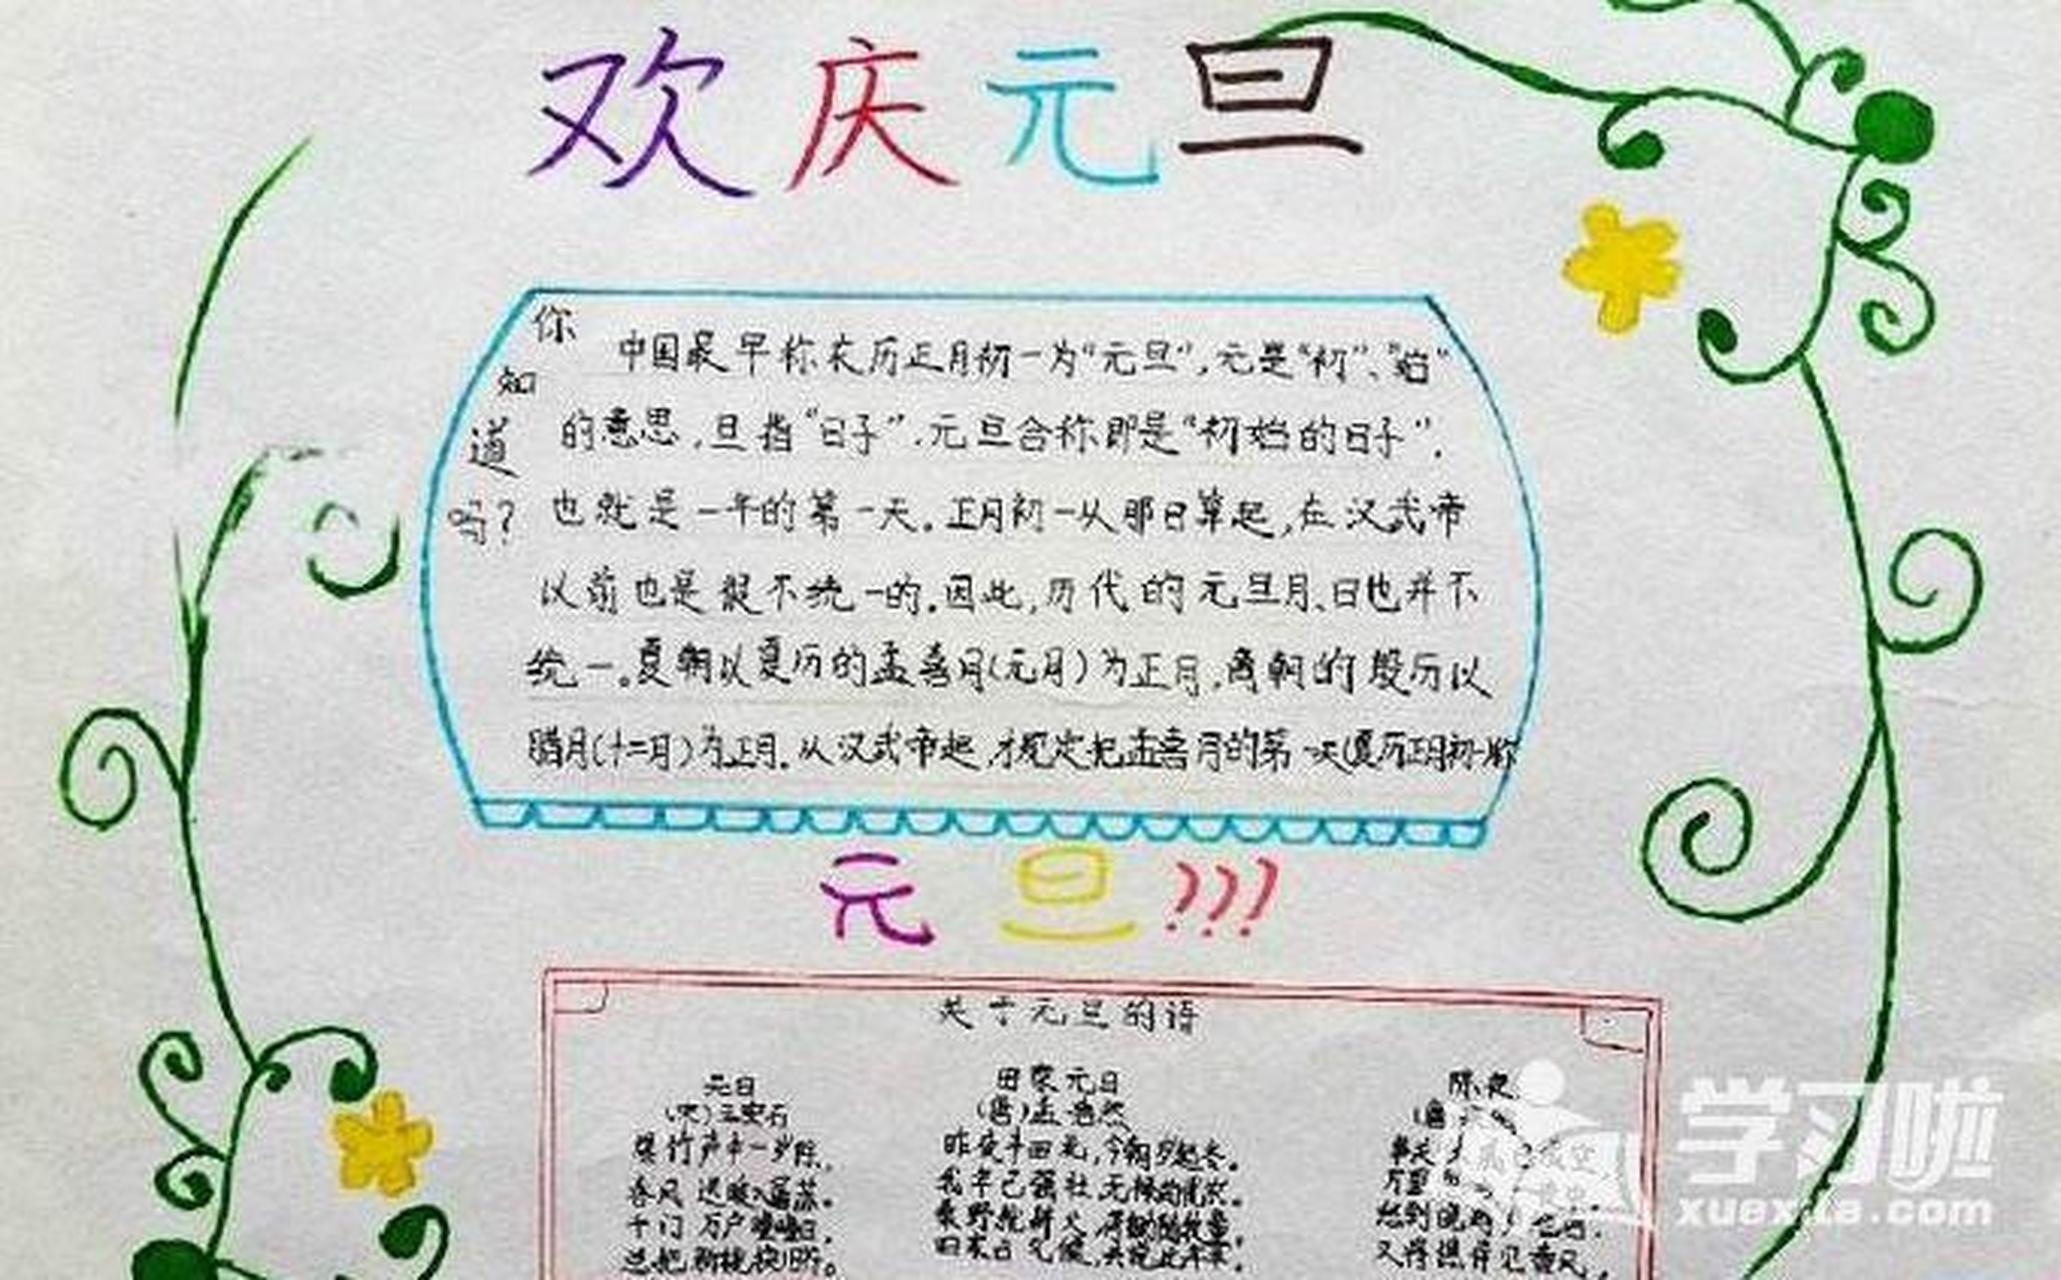 欢庆元旦
你知道吗?
中国最早称农历正月初一为“元旦”,元是“初”、“始”
的意思,旦指“日子”.元旦合称即是“初始的日子”.
也就是一年的第一天.正月初一从那日算起,在汉武帝
以前也是很不统一的.因此,历代的元旦月、日也并不
统一。夏朝以夏历的孟喜月(元月)为正月,商朝的殷历以
腊月(十二月)为正月.从汉武帝起,才规定把孟喜月的第一天(夏历正月初一)称
元旦???
关于元旦的诗
元日
(宋)王安石
爆竹声中一岁除,
春风送暖入屠苏。
千门万户曈曈日,
总把新桃换旧符。
田家元日
(唐)孟浩然
昨夜斗回北,今朝岁起东。
我年已强壮,无禄尚忧农。
桑野就耕父,荷锄随牧童。
田家占气候,共说此年丰。
除夜
学习啦
xuexila.com